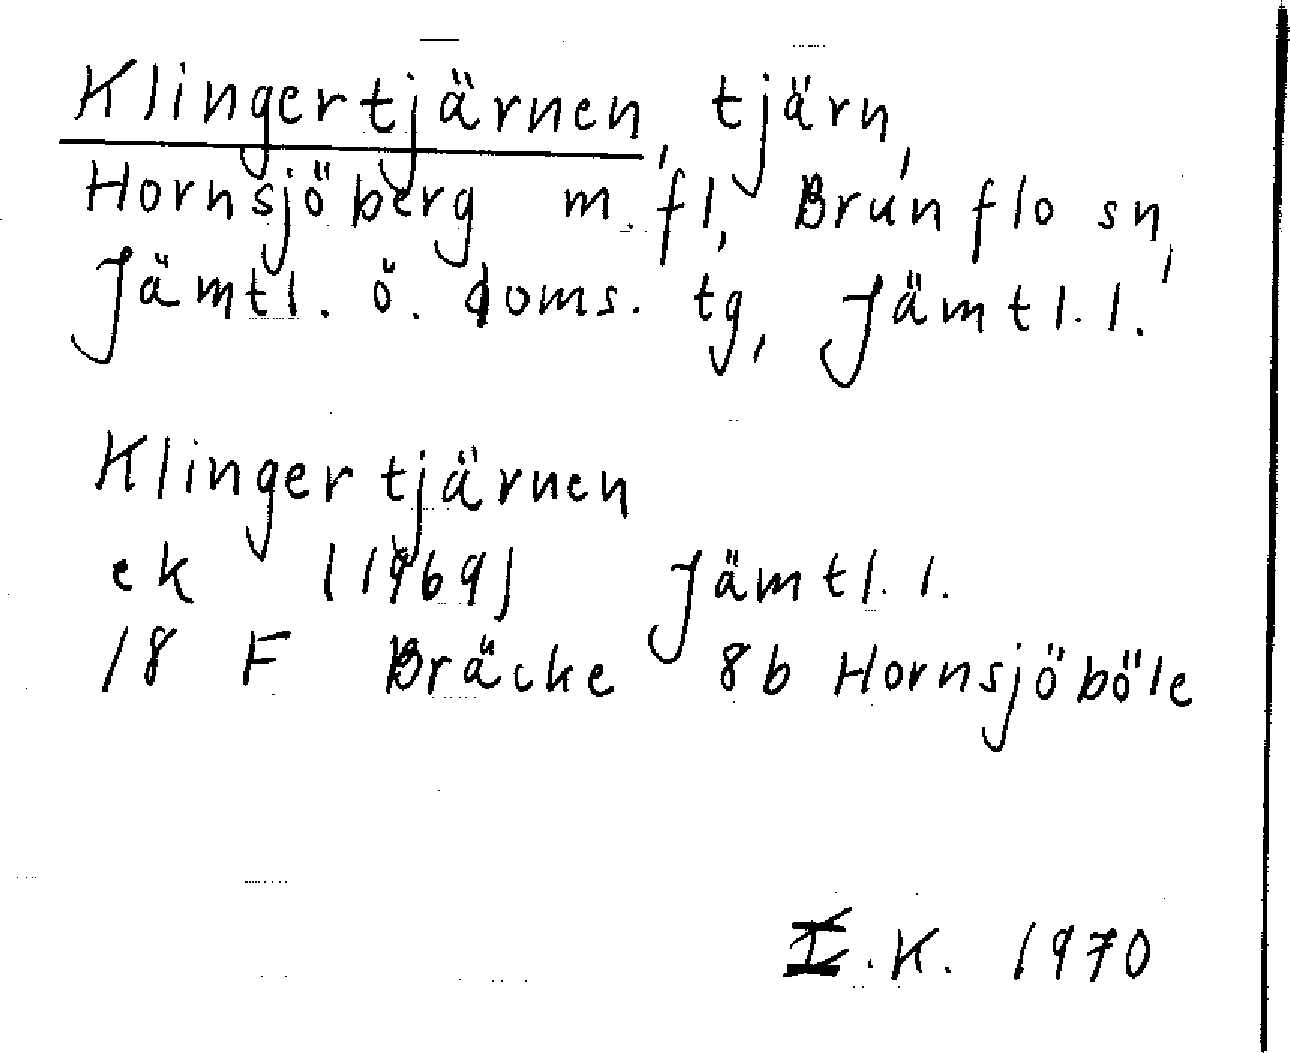 Klingertjärnen, tjärn,
Hornsjöberg m.fl, Brunflo sn,
Jämtl. ö. doms. tg, Jämtl.l.
Klingertjärnen
ek (1969) Jämtl.l.
18 F Bräcke 8b Hornsjöböle
I.K. 1970